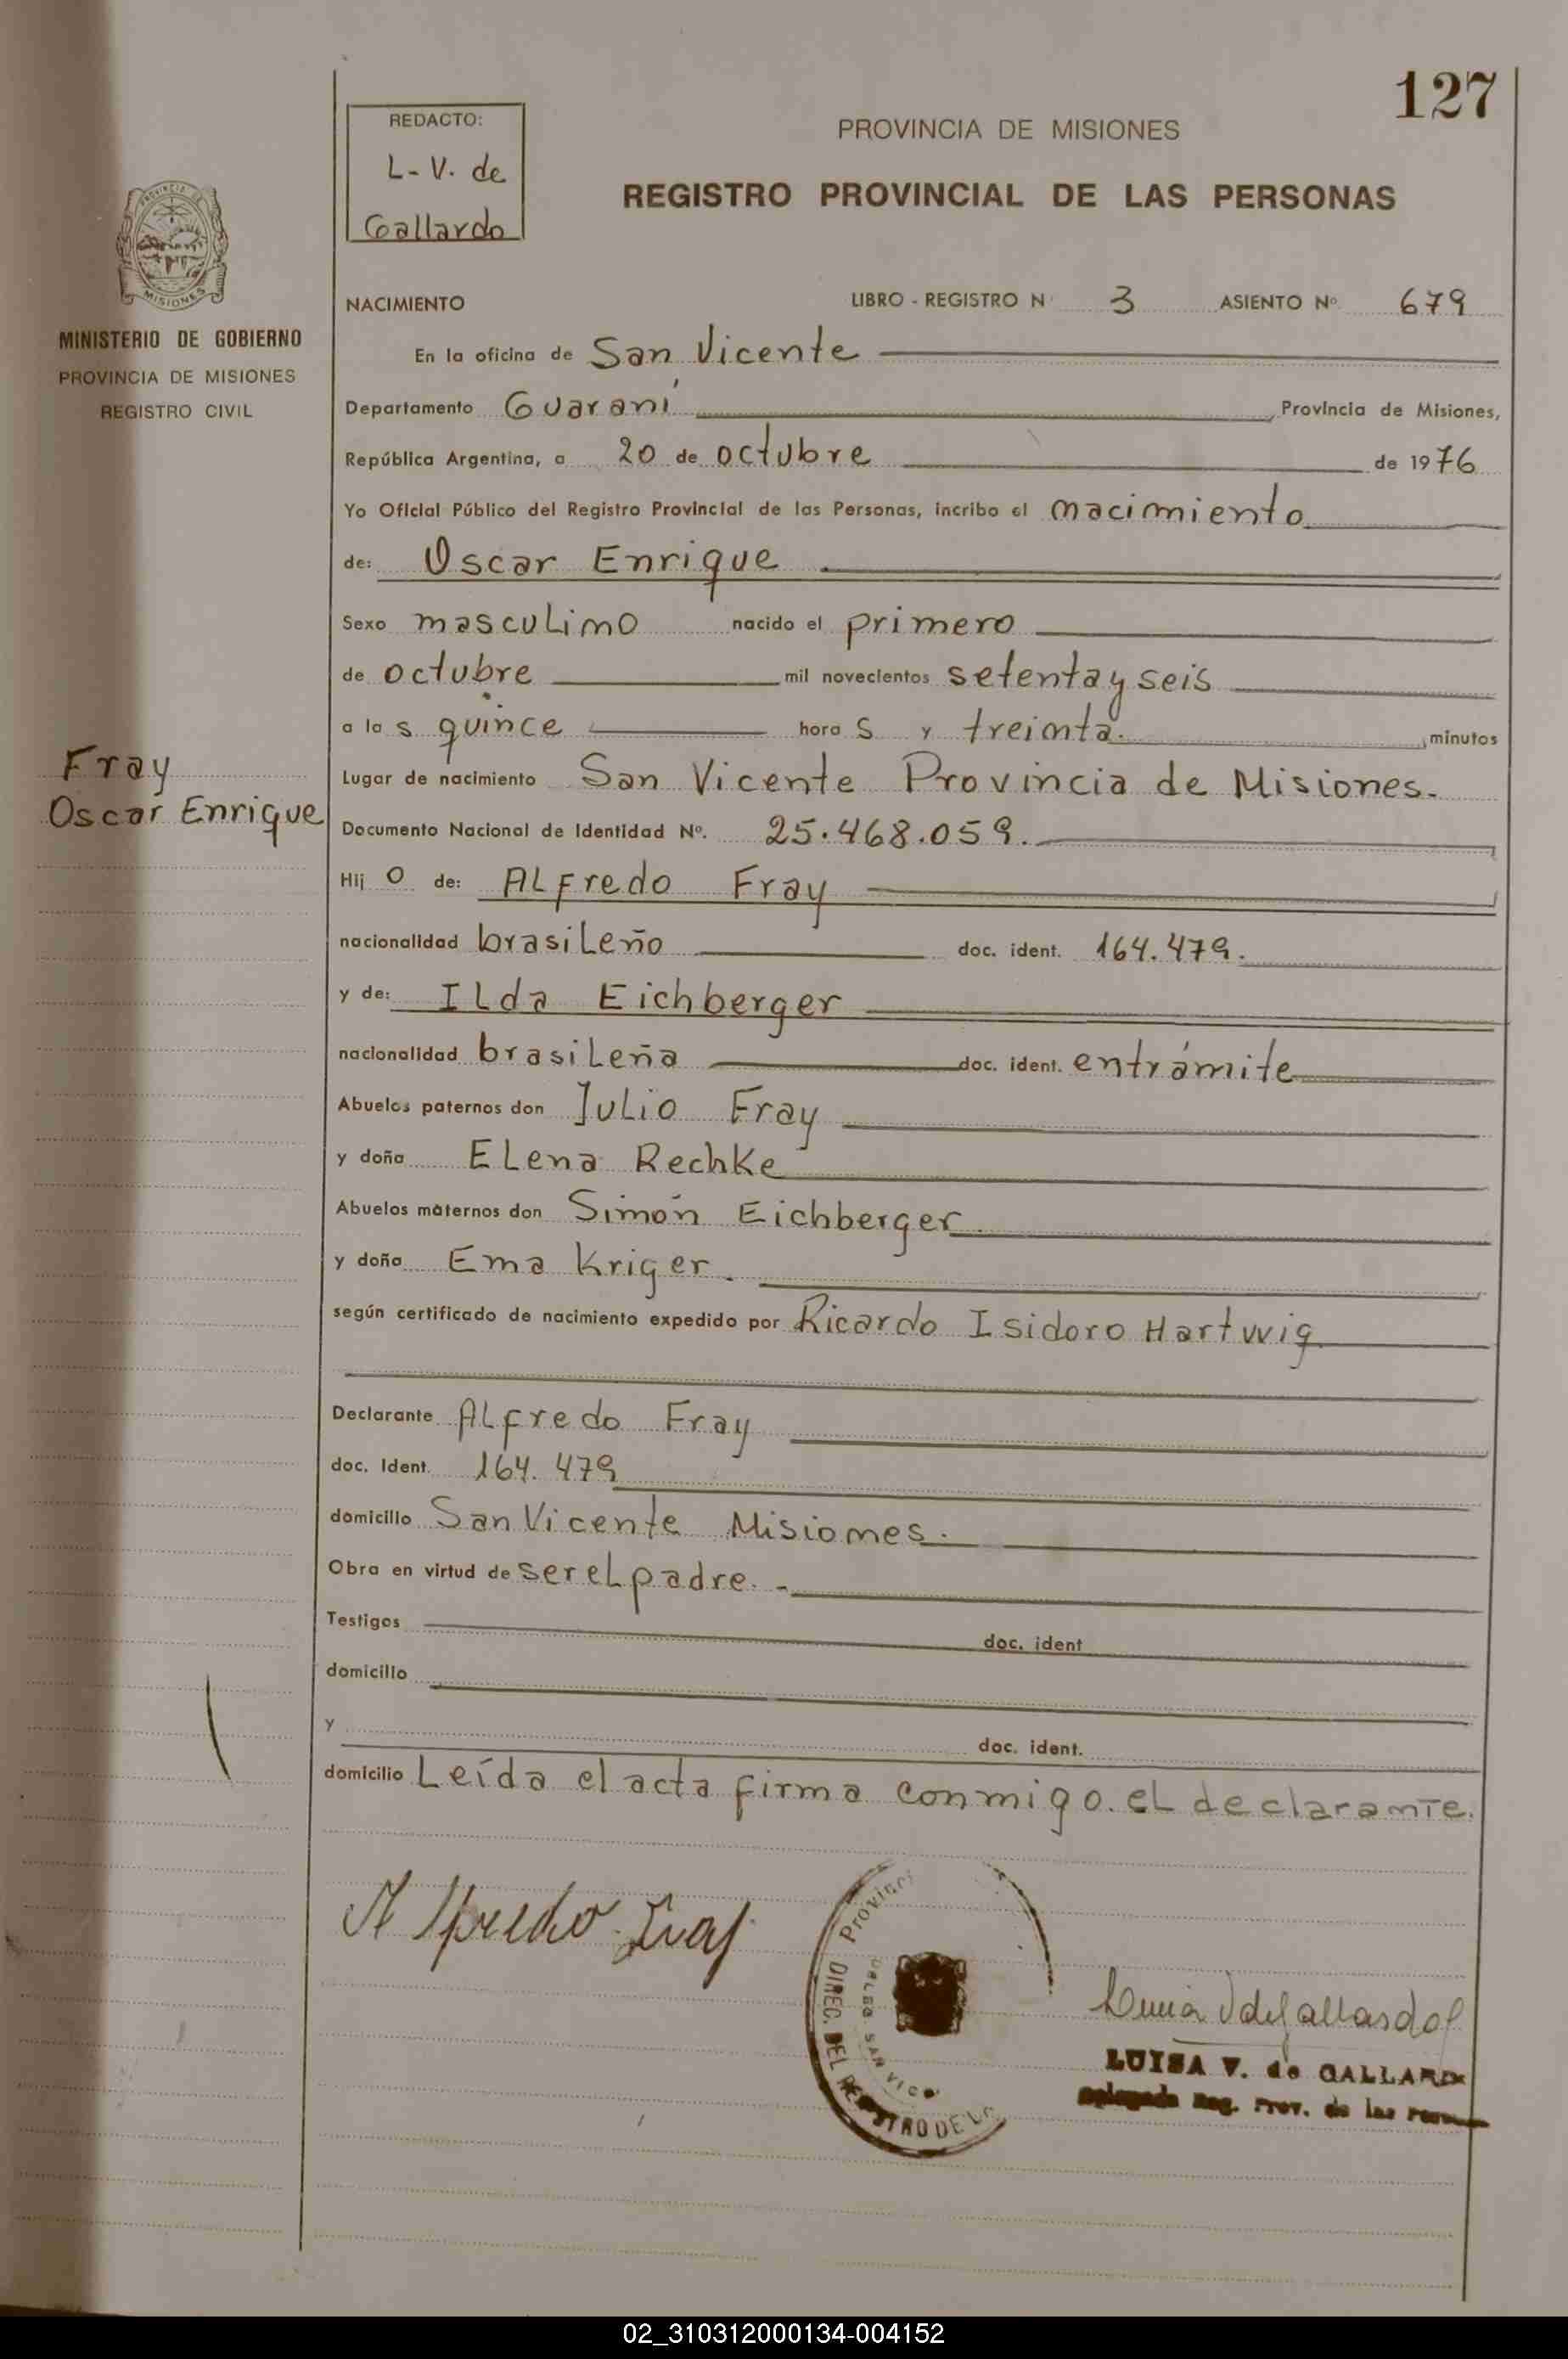 127
REDACTO:
L-V. de
Gallardo
PROVINCIA DE MISIONES
REGISTRO PROVINCIAL DE LAS PERSONAS
MISIONES
MINISTERIO DE GOBIERNO
PROVINCIA DE MISIONES
REGISTRO CIVIL
NACIMIENTO LIBRO - REGISTRO N 3 ASIENTO Nº 679
En la oficina de San Vicente
Departamento Guaraní Provincia de Misiones,
República Argentina, a 20 de octubre de 1976
Yo Oficial Público del Registro Provincial de las Personas, incribo el nacimiento
de: Oscar Enrique
Sexo masculino nacido el primero
de octubre mil novecientos setenta y seis
a la s quince hora s y treinta. minutos
Fray
Oscar Enrique
Lugar de nacimiento San Vicente Provincia de Misiones.
Documento Nacional de Identidad Nº. 25.468.059.
Hij o de: Alfredo Fray
nacionalidad brasileño doc. ident. 164.479.
y de: Ilda Eichberger
nacionalidad brasileña doc. ident. entrámite
Abuelos paternos don Julio Fray
y doña Elena Rechke
Abuelos maternos don Simón Eichberger.
y doña Ema Kriger.
según certificado de nacimiento expedido por Ricardo Isidoro Hartwig
Declarante Alfredo Fray
doc. Ident. 164.479
domicilio San Vicente Misiones.
Obra en virtud de ser el padre.-
Testigos doc. ident
domicilio
y doc. ident.
domicilio Leída el acta firma conmigo el declarante.
Alfredo Fray
DIREC. DEL REGISTRO DE L
SAN VIC
LUISA V. de GALLARDO
Delegada Reg. Prov. de las
02_310312000134-004152